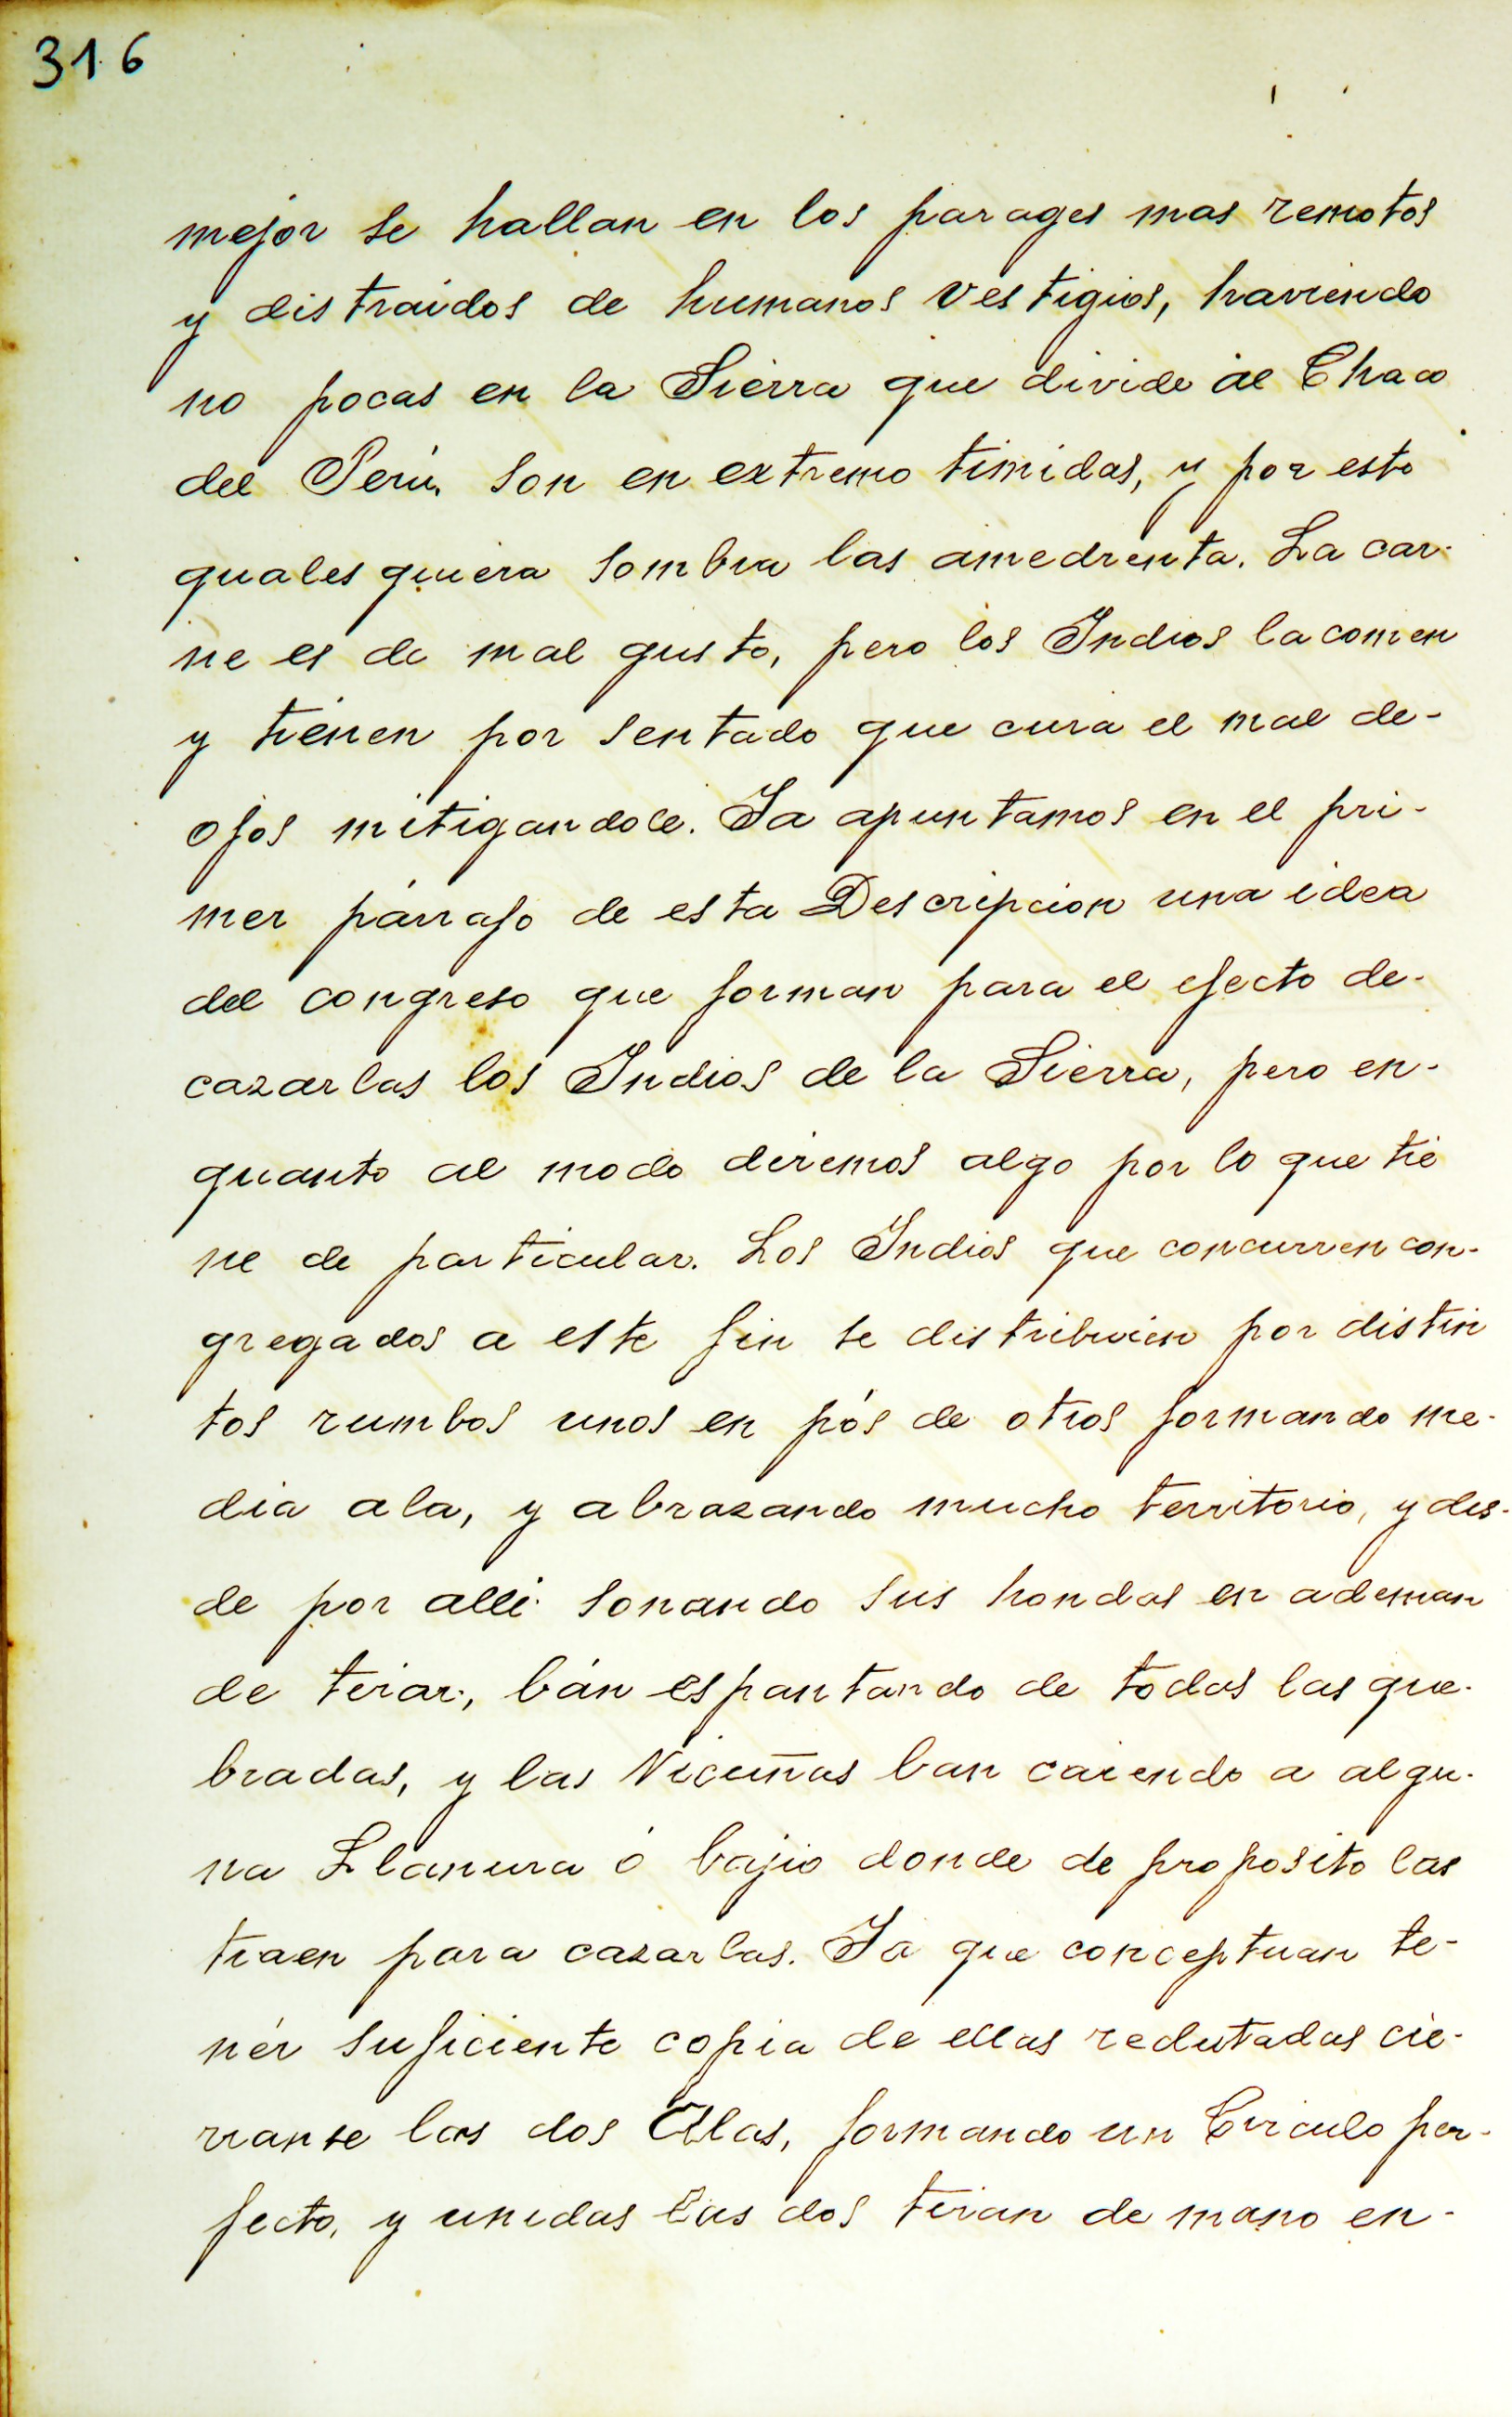 316
mejor se hallan en los parages mas remotos
y distraidos de humanos vestigios, haviendo
no pocas en la Sierra que divide al Chaco
del Perú. Son en extremo timidas, y por esto
quales quiera sombra las amedrenta. La car-
ne es de mal gusto, pero los Indios la comen
y tienen por sentado que cura el mal de-
ojos mitigandole. Ya apuntamos en el pri-
mer párrafo de esta Descripcion una idea
del congreso que forman para el efecto de-
cazarlas los Indios de la Sierra, pero en-
quanto al modo diremos algo por lo que tie
ne de particular. Los Indios que concurren con-
gregados a este fin se distribuien por distin
tos rumbos unos en pós de otros formando me-
dia ala, y abrazando mucho territorio, y des-
de por alli sonando sus hondas en ademan
de tirar, bán espantando de todas las que-
bradas, y las Vicuñas ban caiendo a algu-
na Llanura ó bajio donde de proposito las
traen para cazarlas. Ya que conceptuan te-
nér suficiente copia de ellas reclutadas cie-
rranse las dos Alas, formando un Circulo per-
fecto, y unidas las dos tiran de mano en-